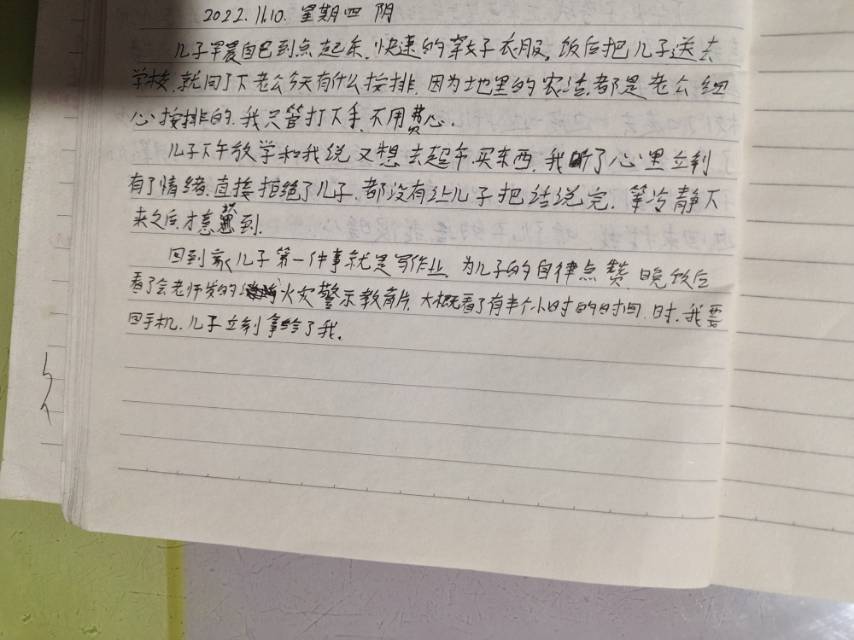 2022.11.10. 星期四 阴
儿子早晨自己到点起床,快速的穿好衣服,饭后把儿子送去
学校,就问了下老公今天有什么按排,因为地里的农活,都是老公细
心按排的,我只管打下手,不用费心.
儿子下午放学和我说又想去超市买东西,我听了心里立刻
有了情绪,直接拒绝了儿子,都没有让儿子把话说完,等冷静下
来之后,才意识到.
回到家儿子第一件事就是写作业,为儿子的自律点赞 晚饭后
看了会老师发的火灾警示教育片,大概看了有半个小时的时间,时,我要
回手机,儿子立刻拿给了我.